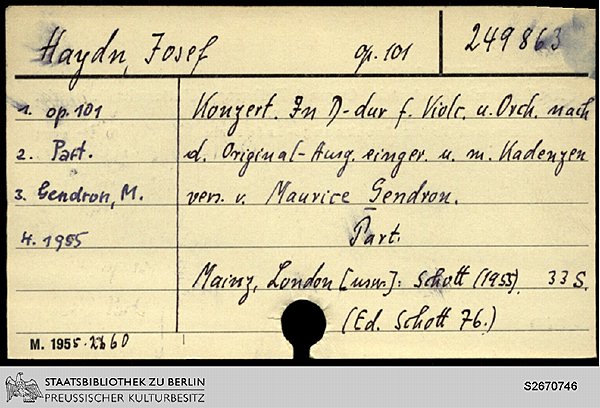 Haydn, Josef
op. 101
249863
1. op. 101
2. Part.
3. Gendron, M.
4. 1955
Konzert. In D-dur f. Violc. u. Orch. nach
d. Original-Ausg. einger. u. m. Kadenzen
vers. v. Maurice Gendron.
Part.
Mainz, London [usw.]: Schott (1955). 33 S.
(Ed. Schott 76.)
M. 1955.2660
STAATSBIBLIOTHEK ZU BERLIN
PREUSSISCHER KULTURBESITZ
S2670746